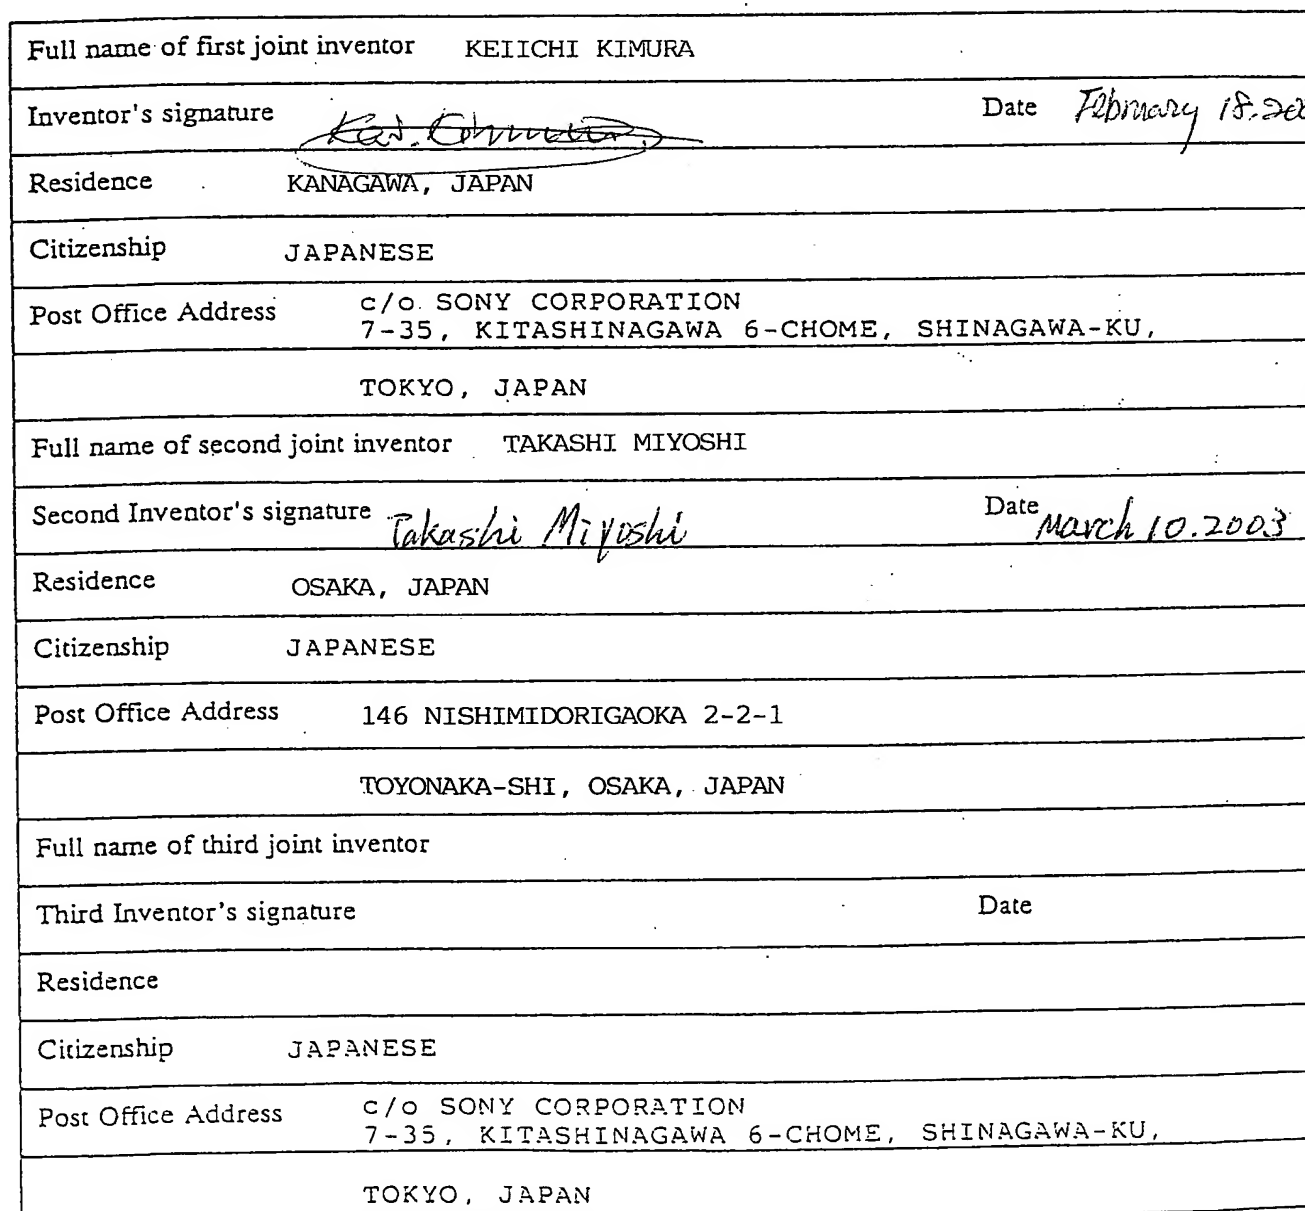 Full name of first joint inventor KEIICHI KIMURA
Inventor's signature Date February 18.
Residence KANAGAWA, JAPAN
Citizenship JAPANESE
Post Office Address c/o SONY CORPORATION
7-35, KITASHINAGAWA 6-CHOME, SHINAGAWA-KU,
TOKYO, JAPAN
Full name of second joint inventor TAKASHI MIYOSHI
Second Inventor's signature Takashi Miyoshi Date March 10.2003
Residence OSAKA, JAPAN
Citizenship JAPANESE
Post Office Address 146 NISHIMIDORIGAOKA 2-2-1
TOYONAKA-SHI, OSAKA, JAPAN
Full name of third joint inventor
Third Inventor's signature Date
Residence
Citizenship JAPANESE
Post Office Address c/o SONY CORPORATION
7-35, KITASHINAGAWA 6-CHOME, SHINAGAWA-KU,
TOKYO, JAPAN